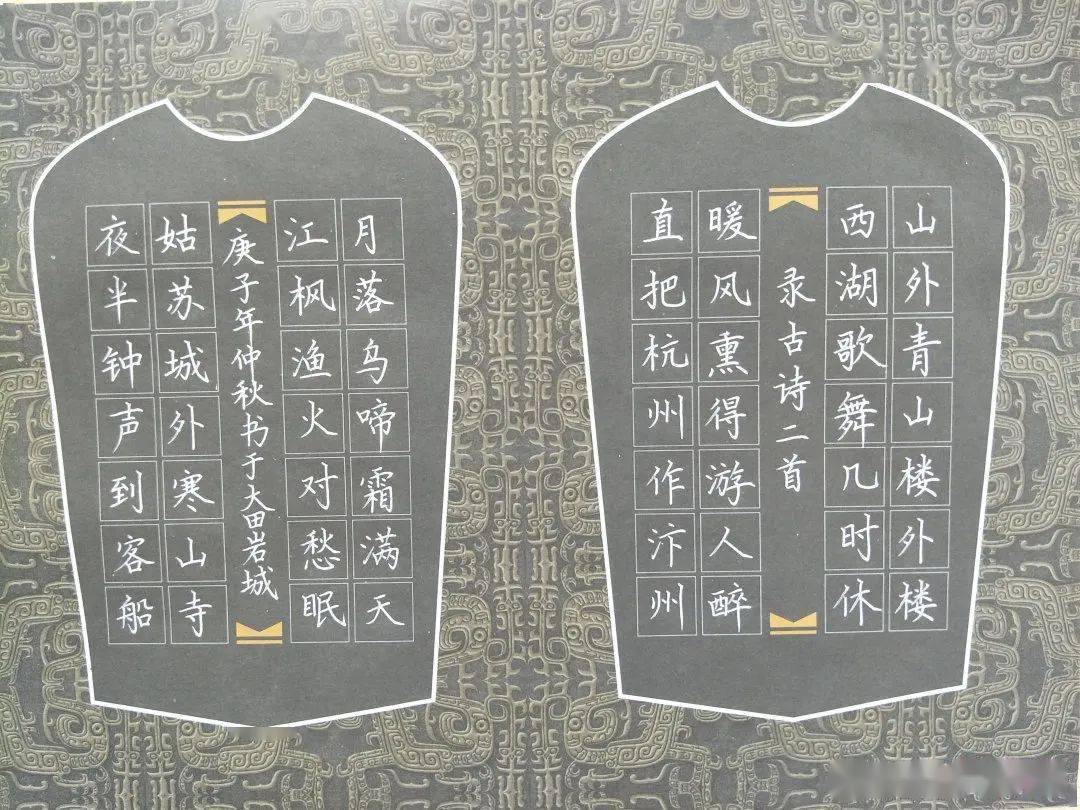 山外青山楼外楼
西湖歌舞几时休
录古诗二首
暖风熏得游人醉
直把杭州作汴州
月落乌啼霜满天
江枫渔火对愁眠
庚子年仲秋书于大田岩城
姑苏城外寒山寺
夜半钟声到客船